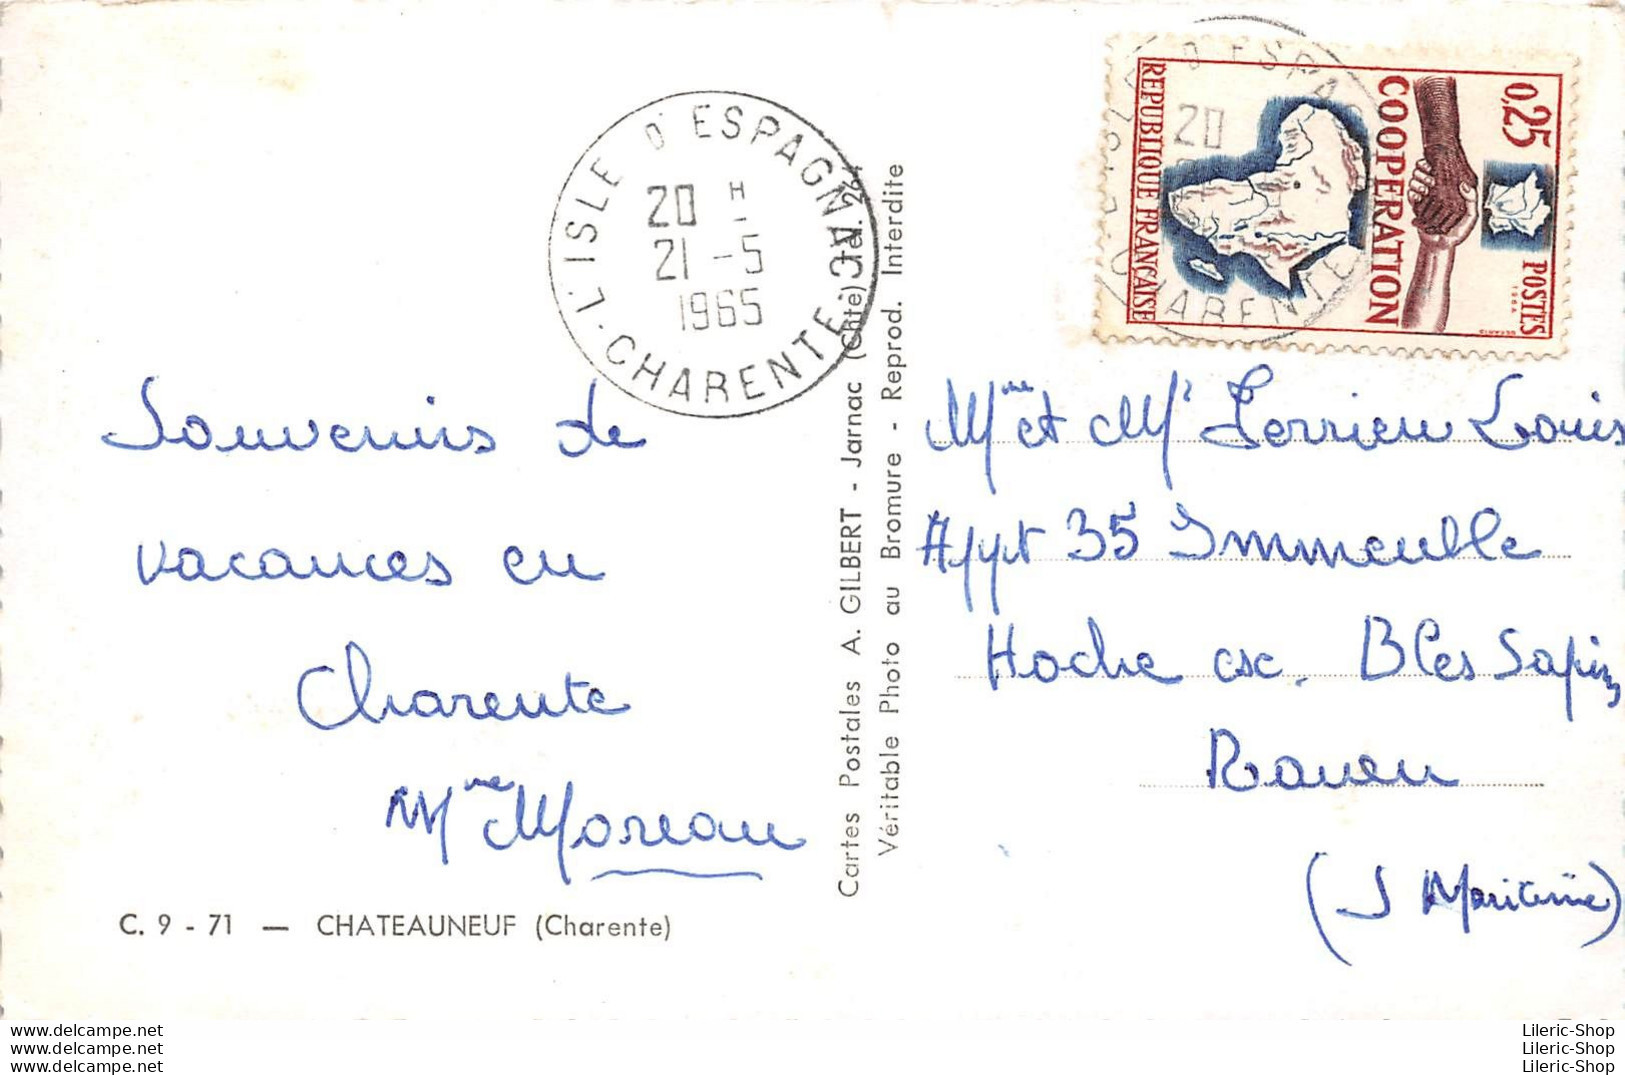 L'ISLE D'ESPAGNAC
20 H
21 - 5
1965
CHARENTE
0,25
POSTES
COOPERATION
REPUBLIQUE FRANÇAISE
1964
DECARIS
Souvenirs de
vacances en
Charente
Mme Moreau
C. 9 - 71 — CHATEAUNEUF (Charente)
Cartes Postales A. GILBERT - Jarnac (Chte)
Véritable Photo au Bromure - Reprod. Interdite
Mme et Mr Terrien Louis
Appt 35 Immeuble
Hoche esc. B Les Sapins
Rouen
(S Maritime)
www.delcampe.net
www.delcampe.net
www.delcampe.net
Lileric-Shop
Lileric-Shop
Lileric-Shop